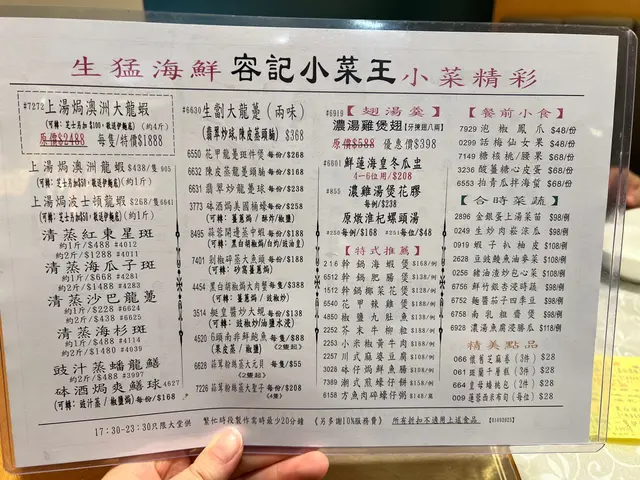 生猛海鮮 容記小菜王 小菜精彩
#7272上湯焗澳洲大龍蝦
(可轉:芝士另加$100,敬送伊麵底) (約4斤)
原價$2488 每隻/特價$1888
上湯焗澳洲龍蝦 $438/隻 905
(可轉:芝士另加$50,敬送伊麵底) (約1斤)
上湯焗波士頓龍蝦 $268/隻6641
(可轉:芝士另加$50,敬送伊麵底) (約1斤)
清蒸紅東星斑
約1斤/$488 #4012
約2斤/$1288 #4011
清蒸海瓜子斑
約1斤/$668 #4281
約2斤/$1488 #4283
清蒸沙巴龍躉
約1斤/$228 #6624
約2斤/$438 #6625
清蒸海杉斑
約1斤/$488 #4114
約2斤/$1480 #4039
豉汁蒸蟠龍鱔
約2斤/$488 #3997
砵酒焗爽鱔球 #4627
(可轉:豉汁蒸/椒鹽焗) 每份/$168
#6630 生劏大龍躉 (兩味)
(翡翠炒球,陳皮蒸頭腩) $368
6550 花甲龍躉斑件煲 每份/$268
6632 陳皮蒸龍躉頭腩 每份/$168
6631 翡翠炒龍躉球 每份/$238
3773 砵酒焗美國桶蠔 每份/$258
(可轉:薑蔥焗/酥炸/椒鹽)
8495 蒜蓉開邊蒸中蝦 每份/$188
(可轉:黑白胡椒焗/白灼/豉油皇)
7401 剁椒碎蒸大魚頭 每份/$188
(可轉:砂窩薑蔥焗)
4454 黑白胡椒焗大肉蟹 每隻/$388
(可轉:薑蔥焗/豉椒炒)
3514 艇皇薑炒大蜆 每份/$138
(可轉:豉椒炒/油鹽水浸)
4520 6頭南非鮮鮑魚 每隻/$88
(果皮蒸/椒鹽) (2隻起)
6628 蒜茸粉絲蒸大元貝 每隻/$55
(2隻起)
7226 蒜茸粉絲蒸大聖子 每份/$208
(4隻)
#6919【翅湯羹】
濃湯雞煲翅[牙揀翅八兩]
原價$588 優惠價$398
#6601 鮮蓮海皇冬瓜盅
4-6位用/$208
#855 濃雞湯煲花膠
每例/$308
原燉淮杞螺頭湯
#250每例/$168 #251每位/$48
【特式推薦】
216 幹鍋海蝦煲 $168/例
6512 幹鍋肥腸煲 $138/例
1512 幹鍋椰菜花煲 $128/例
6540 花甲辣雞煲 $168/例
4850 椒鹽九肚魚 $138/例
2252 芥末牛柳粒 $148/例
2263 小米椒黃牛肉 $148/例
2257 川式麻婆豆腐 $118/例
3028 砵仔焗鮮魚腸 $118/例
7389 潮式煎蠔仔餅 $148/例
6158 方魚肉碎蠔仔粥 $148/窩
【餐前小食】
7929 泡椒鳳爪 $48/份
0299 話梅仙女果 $48/份
7149 糖核桃/腰果 $68/份
3236 酸薑糖心皮蛋 $68/份
6553 拍青瓜拌海蜇 $68/份
【合時菜蔬】
2896 金銀蛋上湯菜苗 $98/例
0249 生炒肉崧涼瓜 $98/例
0919 蝦子扒柚皮 $108/例
2628 豆豉鯪魚油麥菜 $108/例
0256 豬油渣炒包心菜 $108/例
6756 鮮竹銀杏浸時蔬 $98/例
6752 麵醬茄子四季豆 $98/例
6758 南乳粗齋煲 $98/例
6928 濃湯魚腐浸勝瓜 $118/例
精美點品
066 懷舊芝麻卷 (3件) $28
061 斑蘭千層糕 (3件) $28
664 皇母蟠桃包 (2件) $28
009 蓮蓉西米布甸 (每位) $28
17:30-23:30只限大堂供 繁忙時段製作需時最少20分鐘 《另多謝10%服務費》 所有折扣不適用上述食品